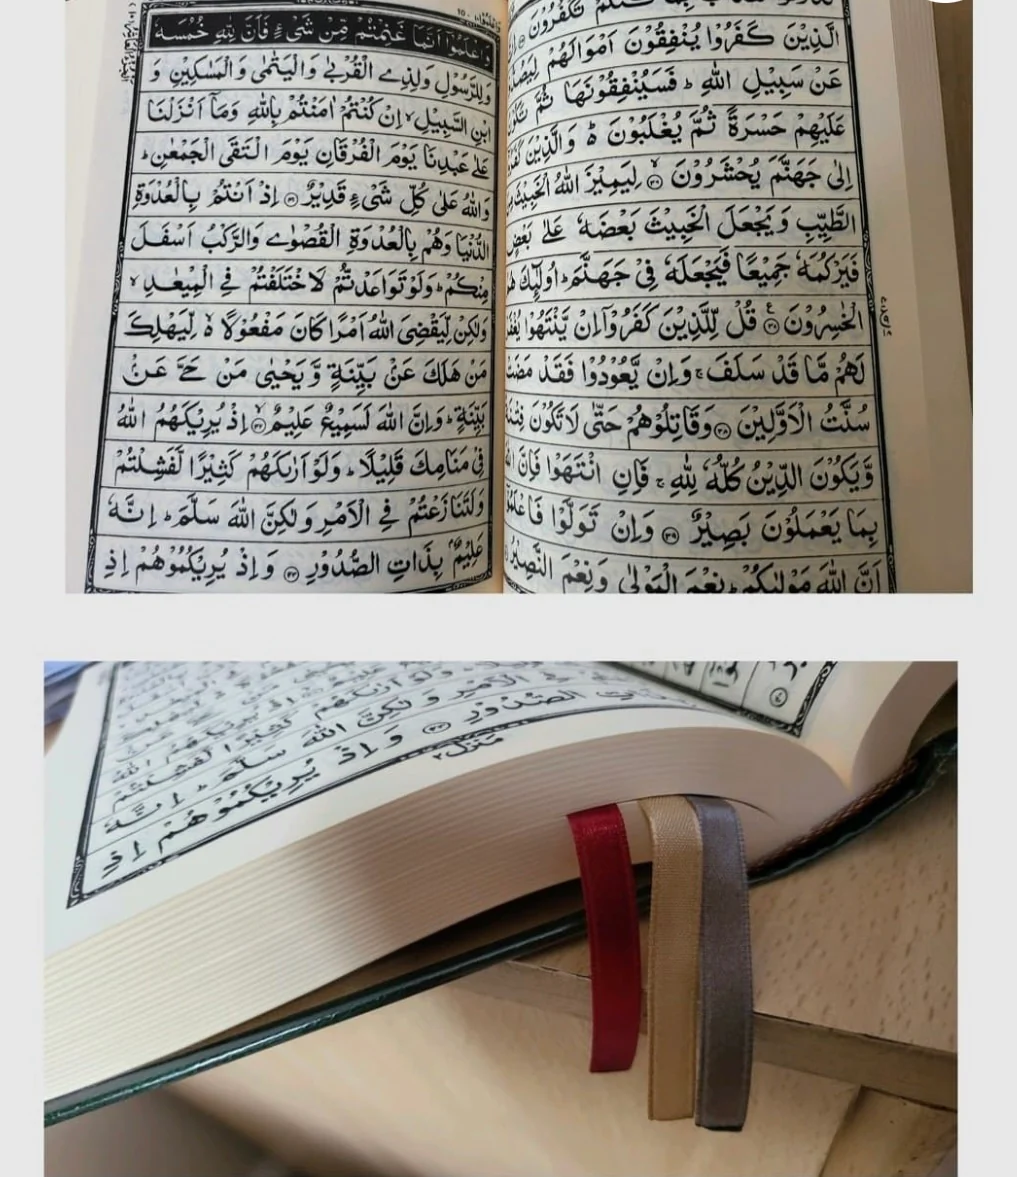 كُنْتُمْ تَكْفُرُوْنَ
الَّذِيْنَ كَفَرُوْا يُنْفِقُوْنَ اَمْوَالَهُمْ
عَنْ سَبِيْلِ اللّٰهِ ؕ فَسَيُنْفِقُوْنَهَا ثُمَّ
عَلَيْهِمْ حَسْرَةً ثُمَّ يُغْلَبُوْنَ ؕ۬ وَالَّذِيْنَ
اِلٰى جَهَنَّمَ يُحْشَرُوْنَ ۙ۝۳۶ لِيَمِيْزَ اللّٰهُ الْخَبِيْثَ
الطَّيِّبِ وَيَجْعَلَ الْخَبِيْثَ بَعْضَهٗ عَلٰى بَعْضٍ
فَيَرْكُمَهٗ جَمِيْعًا فَيَجْعَلَهٗ فِيْ جَهَنَّمَ ؕ اُولٰٓئِكَ
الْخٰسِرُوْنَ ۝۳۷ قُلْ لِّلَّذِيْنَ كَفَرُوْۤا اِنْ يَّنْتَهُوْا
لَهُمْ مَّا قَدْ سَلَفَ ۚ وَاِنْ يَّعُوْدُوْا فَقَدْ مَضَتْ
سُنَّتُ الْاَوَّلِيْنَ ۝۳۸ وَقَاتِلُوْهُمْ حَتّٰى لَا تَكُوْنَ فِتْنَةٌ
وَّيَكُوْنَ الدِّيْنُ كُلُّهٗ لِلّٰهِ ۚ فَاِنِ انْتَهَوْا فَاِنَّ
بِمَا يَعْمَلُوْنَ بَصِيْرٌ ۝۳۹ وَاِنْ تَوَلَّوْا فَاعْلَمُوْۤا
اَنَّ اللّٰهَ مَوْلٰىكُمْ ؕ نِعْمَ الْمَوْلٰى وَنِعْمَ النَّصِيْرُ
وَاعْلَمُوْۤا اَنَّمَا غَنِمْتُمْ مِّنْ شَيْءٍ فَاَنَّ لِلّٰهِ خُمُسَهٗ
وَلِلرَّسُوْلِ وَلِذِي الْقُرْبٰى وَالْيَتٰمٰى وَالْمَسٰكِيْنِ وَ
ابْنِ السَّبِيْلِ ۙ اِنْ كُنْتُمْ اٰمَنْتُمْ بِاللّٰهِ وَمَاۤ اَنْزَلْنَا
عَلٰى عَبْدِنَا يَوْمَ الْفُرْقَانِ يَوْمَ الْتَقَى الْجَمْعٰنِ ؕ
وَاللّٰهُ عَلٰى كُلِّ شَيْءٍ قَدِيْرٌ ۝۴۱ اِذْ اَنْتُمْ بِالْعُدْوَةِ
الدُّنْيَا وَهُمْ بِالْعُدْوَةِ الْقُصْوٰى وَالرَّكْبُ اَسْفَلَ
مِنْكُمْ ؕ وَلَوْ تَوَاعَدْتُّمْ لَاخْتَلَفْتُمْ فِي الْمِيْعٰدِ ۙ
وَلٰكِنْ لِّيَقْضِيَ اللّٰهُ اَمْرًا كَانَ مَفْعُوْلًا ۙ۬ لِّيَهْلِكَ
مَنْ هَلَكَ عَنْۢ بَيِّنَةٍ وَّيَحْيٰى مَنْ حَيَّ عَنْۢ
بَيِّنَةٍ ؕ وَاِنَّ اللّٰهَ لَسَمِيْعٌ عَلِيْمٌ ۙ۝۴۲ اِذْ يُرِيْكَهُمُ اللّٰهُ
فِيْ مَنَامِكَ قَلِيْلًا ؕ وَلَوْ اَرٰىكَهُمْ كَثِيْرًا لَّفَشِلْتُمْ
وَلَتَنَازَعْتُمْ فِي الْاَمْرِ وَلٰكِنَّ اللّٰهَ سَلَّمَ ؕ اِنَّهٗ
عَلِيْمٌۢ بِذَاتِ الصُّدُوْرِ ۝۴۳ وَاِذْ يُرِيْكُمُوْهُمْ اِذِ
كَثِيْرًا لَّفَشِلْتُمْ
فِي الْاَمْرِ وَلٰكِنَّ اللّٰهَ سَلَّمَ ؕ اِنَّهٗ
الصُّدُوْرِ ۝۴۳ وَاِذْ يُرِيْكُمُوْهُمْ اِذِ
مَنْزِل ۲